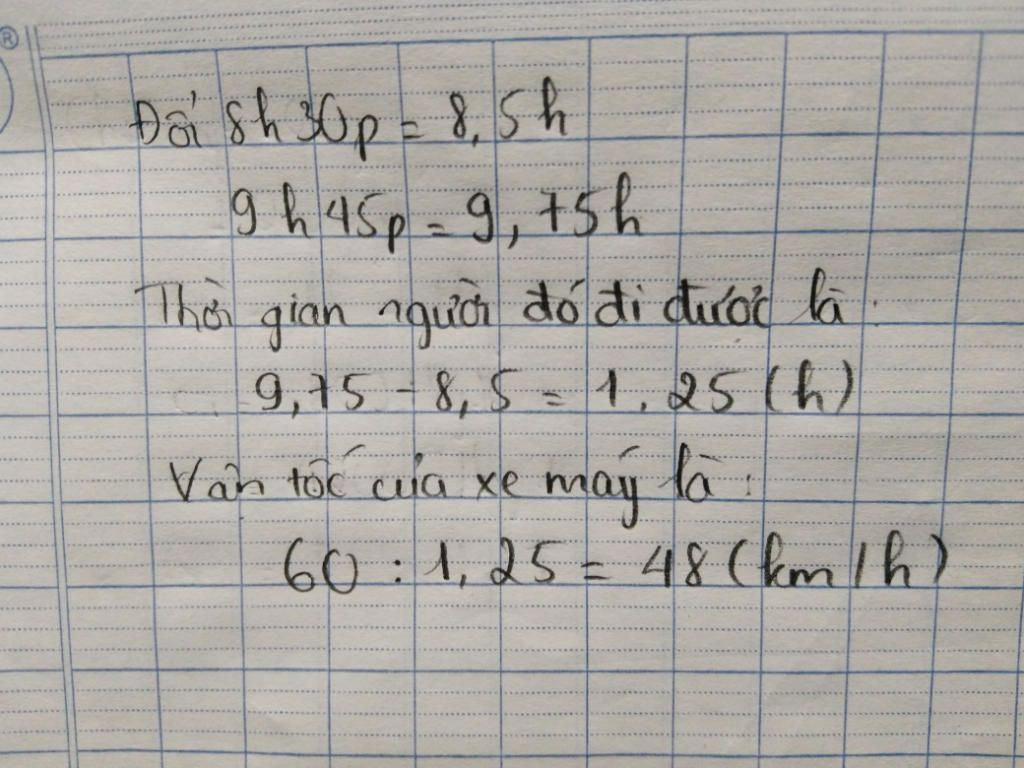 ®
Đổi 8h 30p = 8,5h
9h 45p = 9,75h
Thời gian người đó đi được là:
9,75 - 8,5 = 1,25 (h)
Vận tốc của xe máy là:
60 : 1,25 = 48 (km/h)